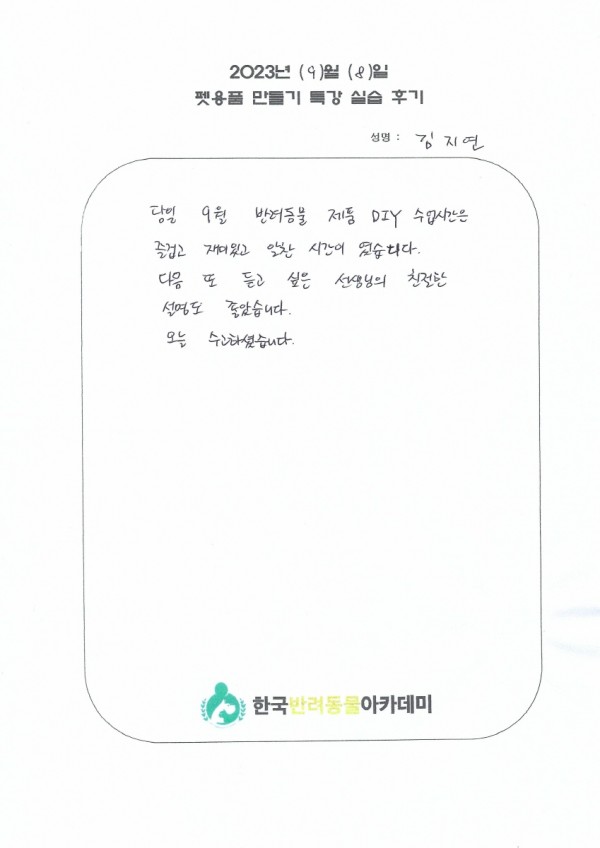 2023년 (9)월 (8)일
펫용품 만들기 특강 실습 후기
성명 : 김지연
당일 9월 반려동물 제품 DIY 수업시간은
즐겁고 재미있고 알찬 시간이 였습니다.
다음 또 듣고 싶은 선생님의 친절한
설명도 좋았습니다.
오늘 수고하셨습니다.
한국반려동물아카데미